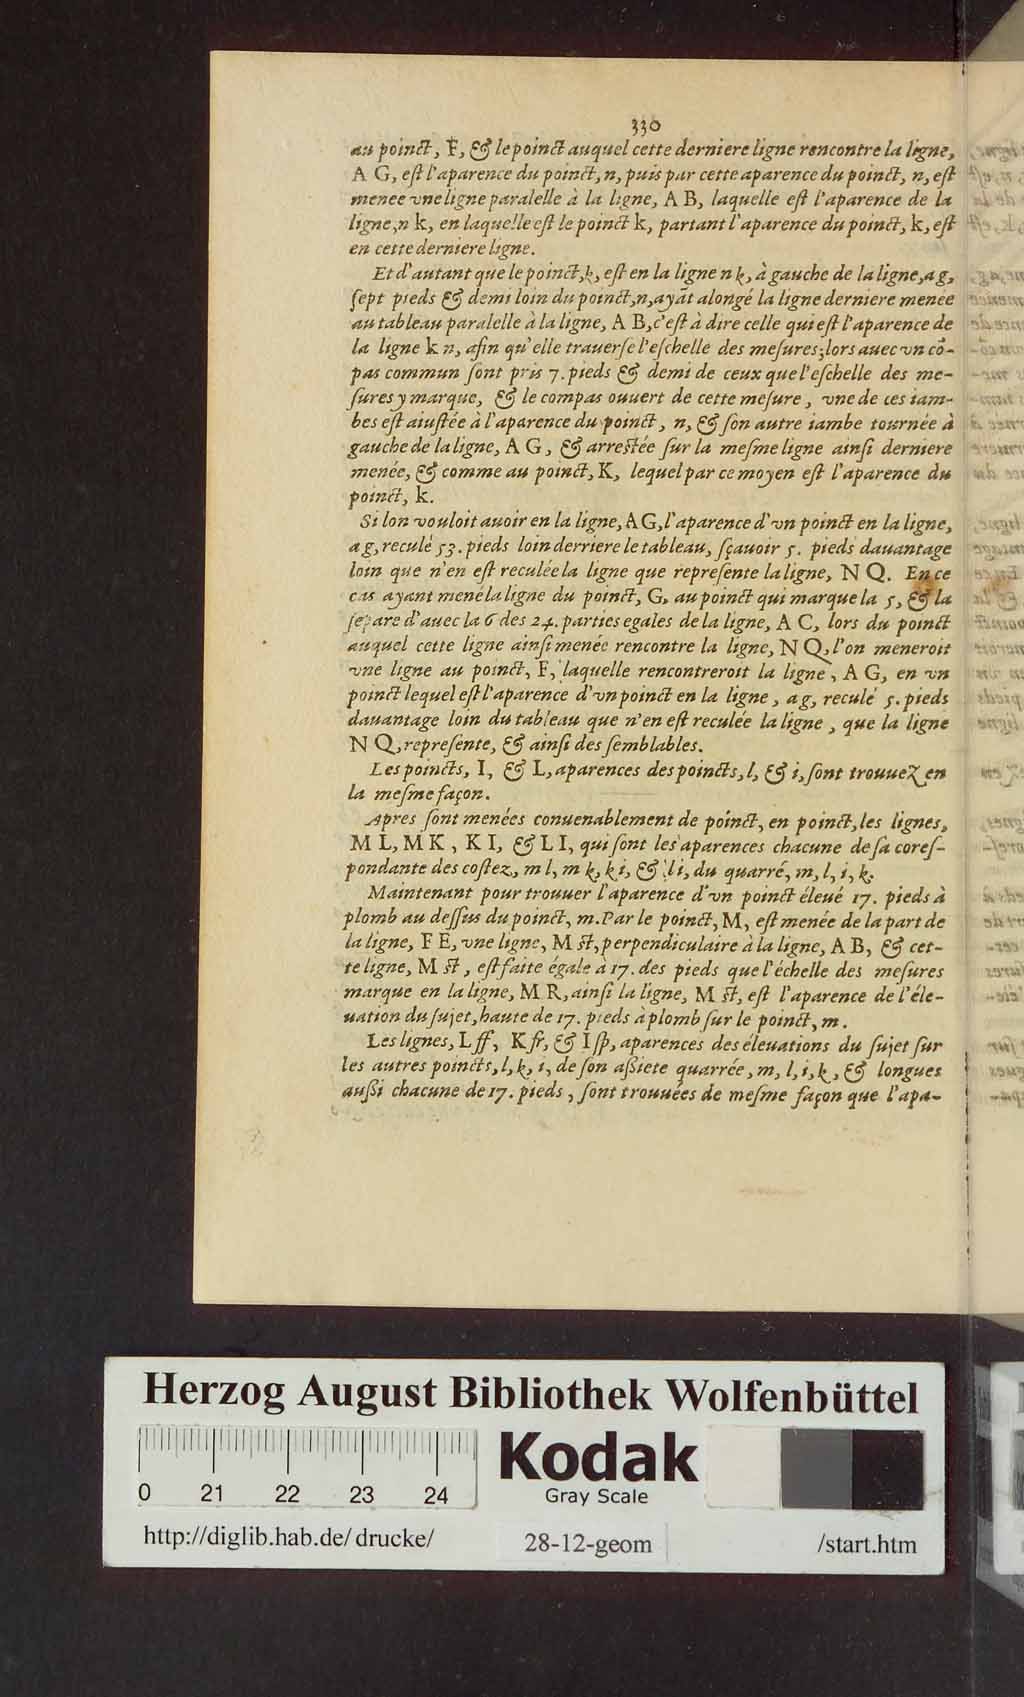 330
au poinct, F, & le poinct auquel cette derniere ligne rencontre la ligne,
A G, est l'aparence du poinct, n, puis par cette aparence du poinct, n, est
menee vne ligne paralelle à la ligne, A B, laquelle est l'aparence de la
ligne, n k, en laquelle est le poinct k, partant l'aparence du poinct, k, est
en cette derniere ligne.
Et d'autant que le poinct, k, est en la ligne n k, à gauche de la ligne, a g,
sept pieds & demi loin du poinct, n, ayāt alongé la ligne derniere menee
au tableau paralelle à la ligne, A B, c'est à dire celle qui est l'aparence de
la ligne k n, afin qu'elle trauerse l'eschelle des mesures; lors auec vn cō-
pas commun sont pris 7. pieds & demi de ceux que l'eschelle des me-
sures y marque, & le compas ouuert de cette mesure, vne de ces iam-
bes est aiustée à l'aparence du poinct, n, & son autre iambe tournée à
gauche de la ligne, A G, & arrestée sur la mesme ligne ainsi derniere
menée, & comme au poinct, K, lequel par ce moyen est l'aparence du
poinct, k.
Si lon vouloit auoir en la ligne, A G, l'aparence d'vn poinct en la ligne,
a g, reculé 53. pieds loin derriere le tableau, sçauoir 5. pieds dauantage
loin que n'en est reculée la ligne que represente la ligne, N Q. En ce
cas ayant mené la ligne du poinct, G, au poinct qui marque la 5, & la
separe d'auec la 6 des 24. parties egales de la ligne, A C, lors du poinct
auquel cette ligne ainsi menée rencontre la ligne, N Q, l'on meneroit
vne ligne au poinct, F, laquelle rencontreroit la ligne, A G, en vn
poinct lequel est l'aparence d'vn poinct en la ligne, a g, reculé 5. pieds
dauantage loin du tableau que n'en est reculée la ligne, que la ligne
N Q, represente, & ainsi des semblables.
Les poincts, I, & L, aparences des poincts, l, & i, sont trouuez en
la mesme façon.
Apres sont menées conuenablement de poinct, en poinct, les lignes,
M L, M K, K I, & L I, qui sont les aparences chacune de sa cores-
pondante des costez, m l, m k, k i, & l i, du quarré, m, l, i, k.
Maintenant pour trouuer l'aparence d'vn poinct éleué 17. pieds à
plomb au dessus du poinct, m. Par le poinct, M, est menée de la part de
la ligne, F E, vne ligne, M st, perpendiculaire à la ligne, A B, & cet-
te ligne, M st, est faite égale à 17. des pieds que l'échelle des mesures
marque en la ligne, M R, ainsi la ligne, M st, est l'aparence de l'éle-
uation du sujet, haute de 17. pieds à plomb sur le poinct, m.
Les lignes, L ff, K fr, & I sp, aparences des éleuations du sujet sur
les autres poincts, l, k, i, de son assiete quarrée, m, l, i, k, & longues
aussi chacune de 17. pieds, sont trouuées de mesme façon que l'apa-
Herzog August Bibliothek Wolfenbüttel
0 21 22 23 24
Kodak
Gray Scale
http://diglib.hab.de/drucke/ 28-12-geom /start.htm